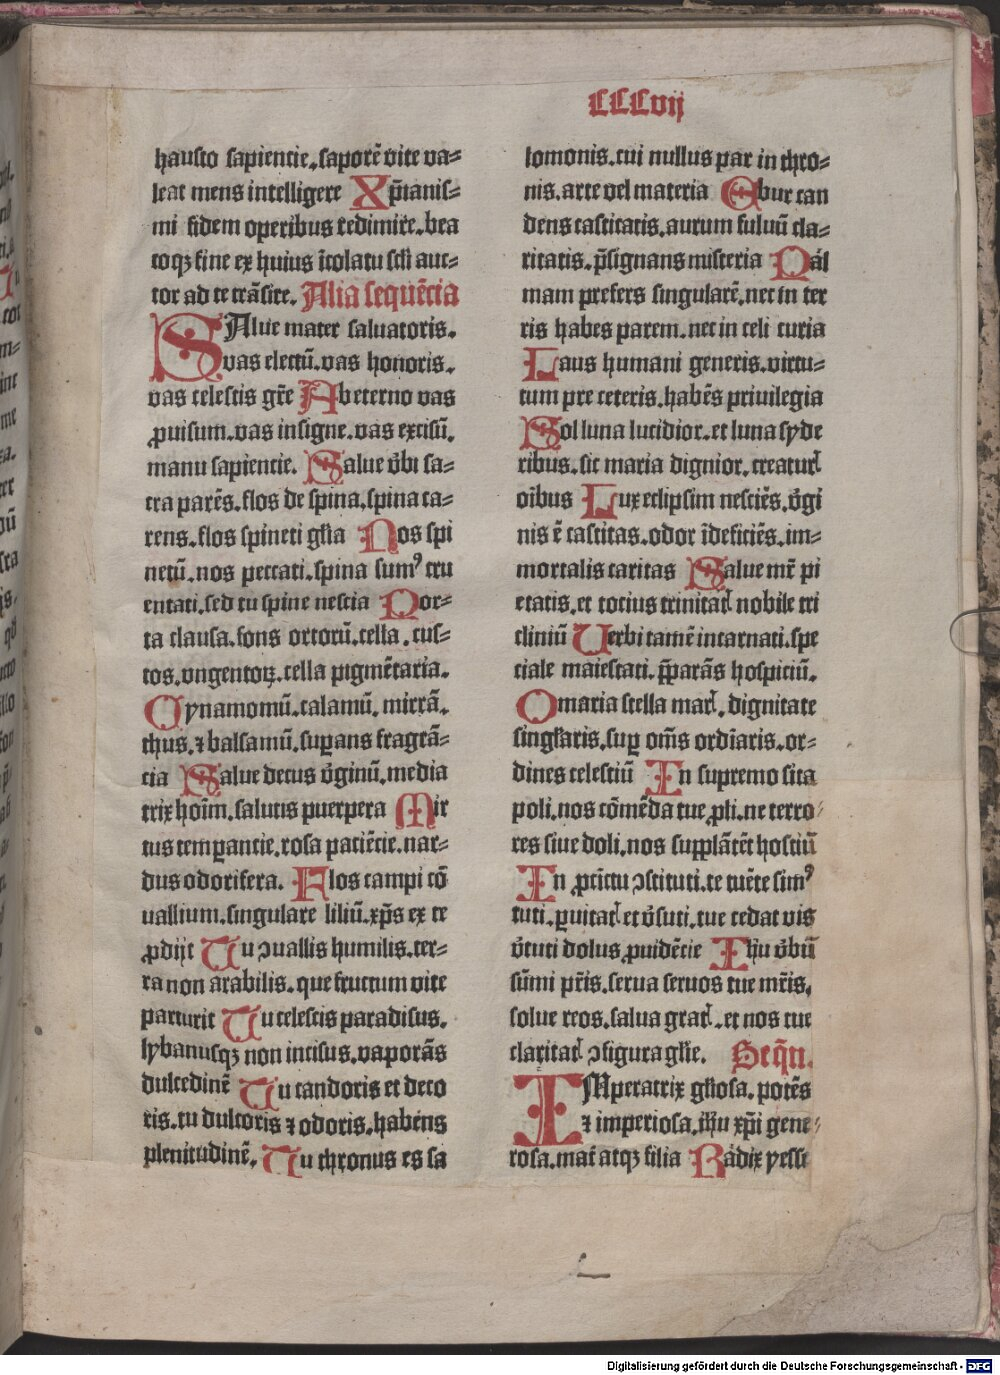 CCCvij
hausto sapientie.saporē vite va⸗
leat mens intelligere Xp̄ianis⸗
mi fidem operibus redimire.bea
toqȝ fine ex huius īcolatu scl̄i auc⸗
tor ad te trāsire. Alia sequēcia
SAlue mater saluatoris.
vas electū.vas honoris.
vas celestis gr̄e Ab eterno vas
ꝓuisum.vas insigne.vas excisū.
manu sapiencie. Salue v̄bi sa⸗
cra parēs.flos de spina.spina ca⸗
rens.flos spineti gl̄ia Nos spi
netū.nos peccati.spina sumꝰ cru
entati.sed tu spine nescia Por⸗
ta clausa.fons ortorū.cella.cus⸗
tos.vngentoꝝ.cella pigmētaria.
Cynamomū.calamū.mirrā.
thus.⁊ balsamū.suꝑans fragrā⸗
cia Salue decus v̄ginū.media
trix hoīm.salutis puerpera Mir
tus temꝑantie.rosa paciēcie.nar⸗
dus odorifera. Flos campi cō
uallium.singulare liliū.xp̄s ex te
ꝓdijt Tu ↄuallis humilis.ter⸗
ra non arabilis.que fructum vite
parturit Tu celestis paradisus.
lybanusqȝ non incisus.vaporās
dulcedinē Tu candoris et deco
ris.tu dulcoris ⁊ odoris.habens
plenitudinē. Tu thronus es sa
lomonis.cui nullus par in thro⸗
nis.arte vel materia Ebur can
dens castitatis.aurum fuluū cla⸗
ritatis.p̄signans misteria Pal
mam prefers singularē.nec in ter
ris habes parem.nec in celi curia
Laus humani generis.virtu⸗
tum pre ceteris.habēs priuilegia
Sol luna lucidior.et luna syde
ribus.sic maria dignior.creaturꝭ
oībus Lux eclipsim nesciēs.v̄gi
nis ē castitas.odor īdeficiēs.im⸗
mortalis caritas Salue mr̄ pi
etatis.et tocius trinitatꝭ nobile tri
cliniū Verbi tamē incarnati.spe
ciale maiestati.p̄parās hospiciū.
O maria stella marꝭ.dignitate
singl̄aris.suꝑ om̄s ordīaris.or⸗
dines celestiū In supremo sita
poli.nos cōmēda tue ꝓli.ne terro⸗
res siue doli.nos supplātēt hostiū
In ꝓcīctu ↄstituti.te tuēte simꝰ
tuti.ꝑuitatꝭ et v̄suti.tue cedat vis
v̄tuti dolus ꝓuidēcie Ihu v̄bū
sūmi pr̄is.serua seruos tue mr̄is.
solue reos.salua gratꝭ.et nos tue
claritatꝭ ↄfigura gl̄ie. Seqn̄.
IMperatrix gl̄iosa.potēs
⁊ imperiosa.ih̄u xp̄i gene⸗
rosa.mat̄ atqȝ filia Radix yesse
Digitalisierung gefördert durch die Deutsche Forschungsgemeinschaft - DFG